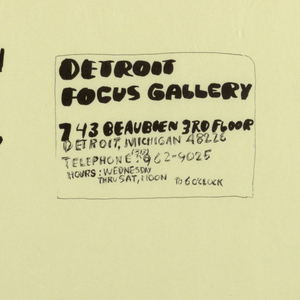 DETROIT
FOCUS GALLERY
743 BEAUBIEN 3RD FLOOR
DETROIT, MICHIGAN 48226
TELEPHONE (313) 962-9025
HOURS: WEDNESDAY
THRU SAT, NOON TO 6 O'CLOCK